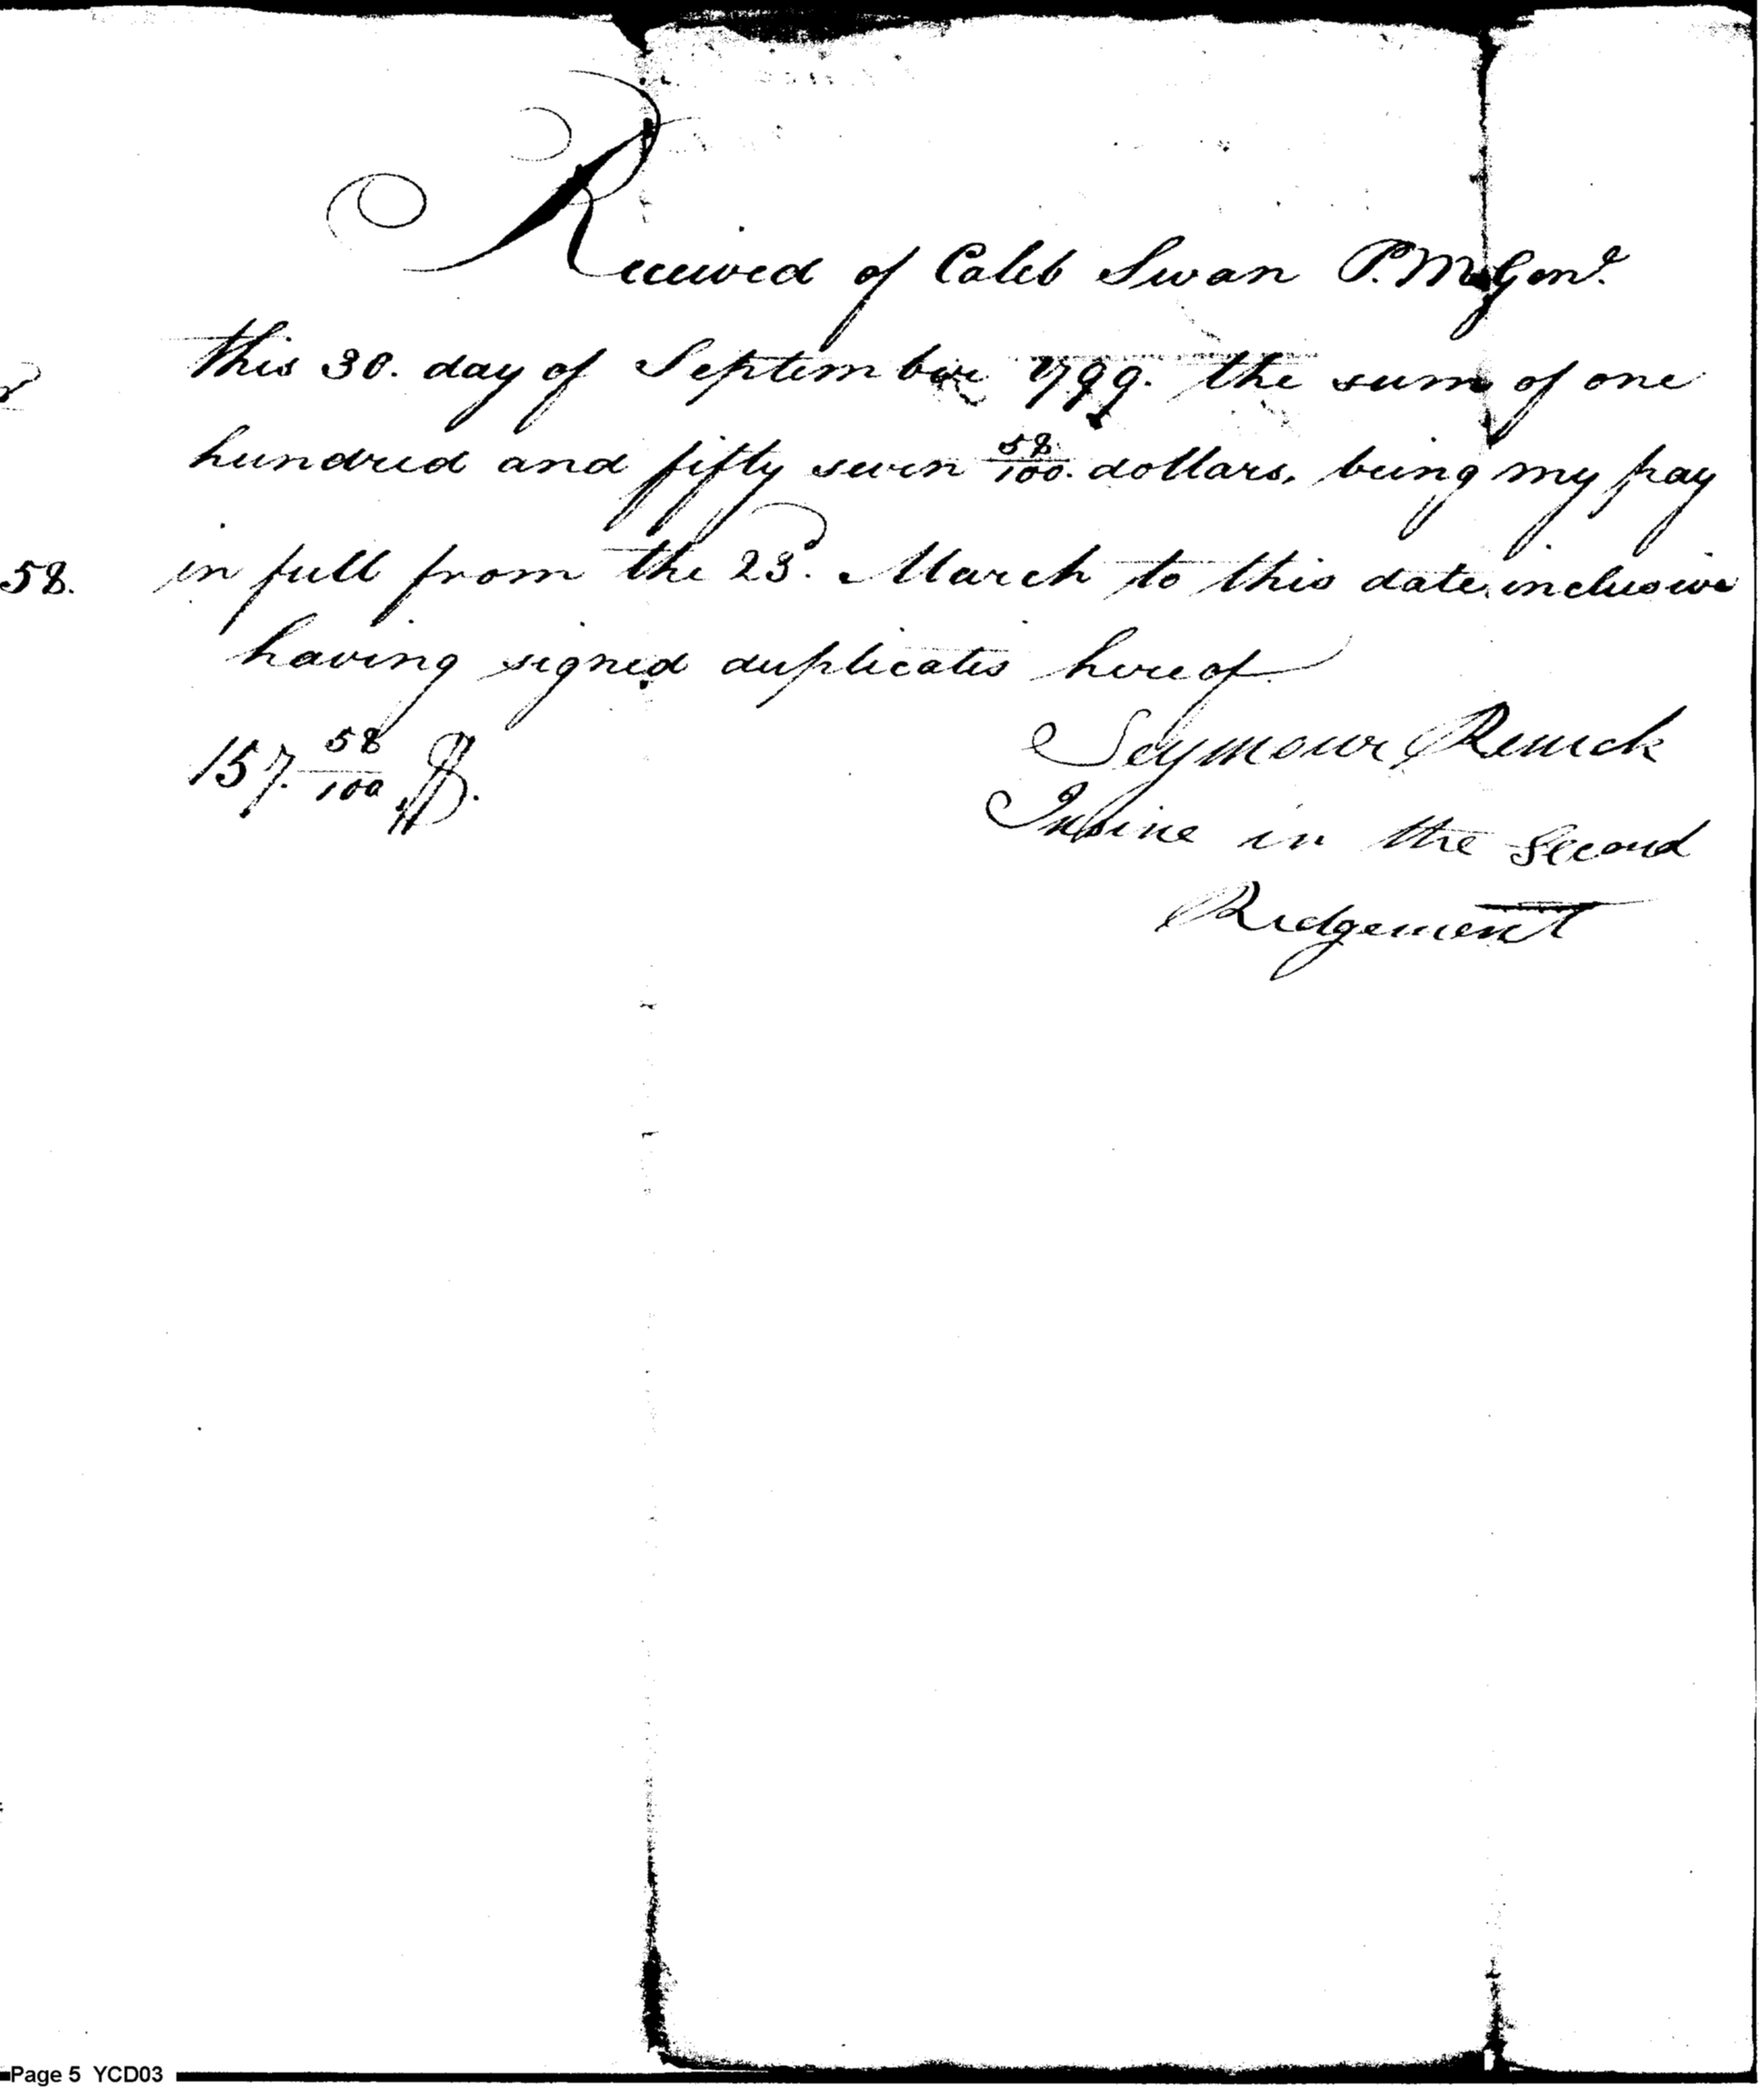 Received of Caleb Swan P. M. Genl.
this 30. day of September 1799. the sum of one
hundred and fifty seven 58/100. dollars, being my pay
58. in full from the 23d. March to this date, inclusive
having signed duplicates hereof.
157. 58/100 $.
Seymour Renick
Insine in the Second
Ridgement
Page 5 YCD03